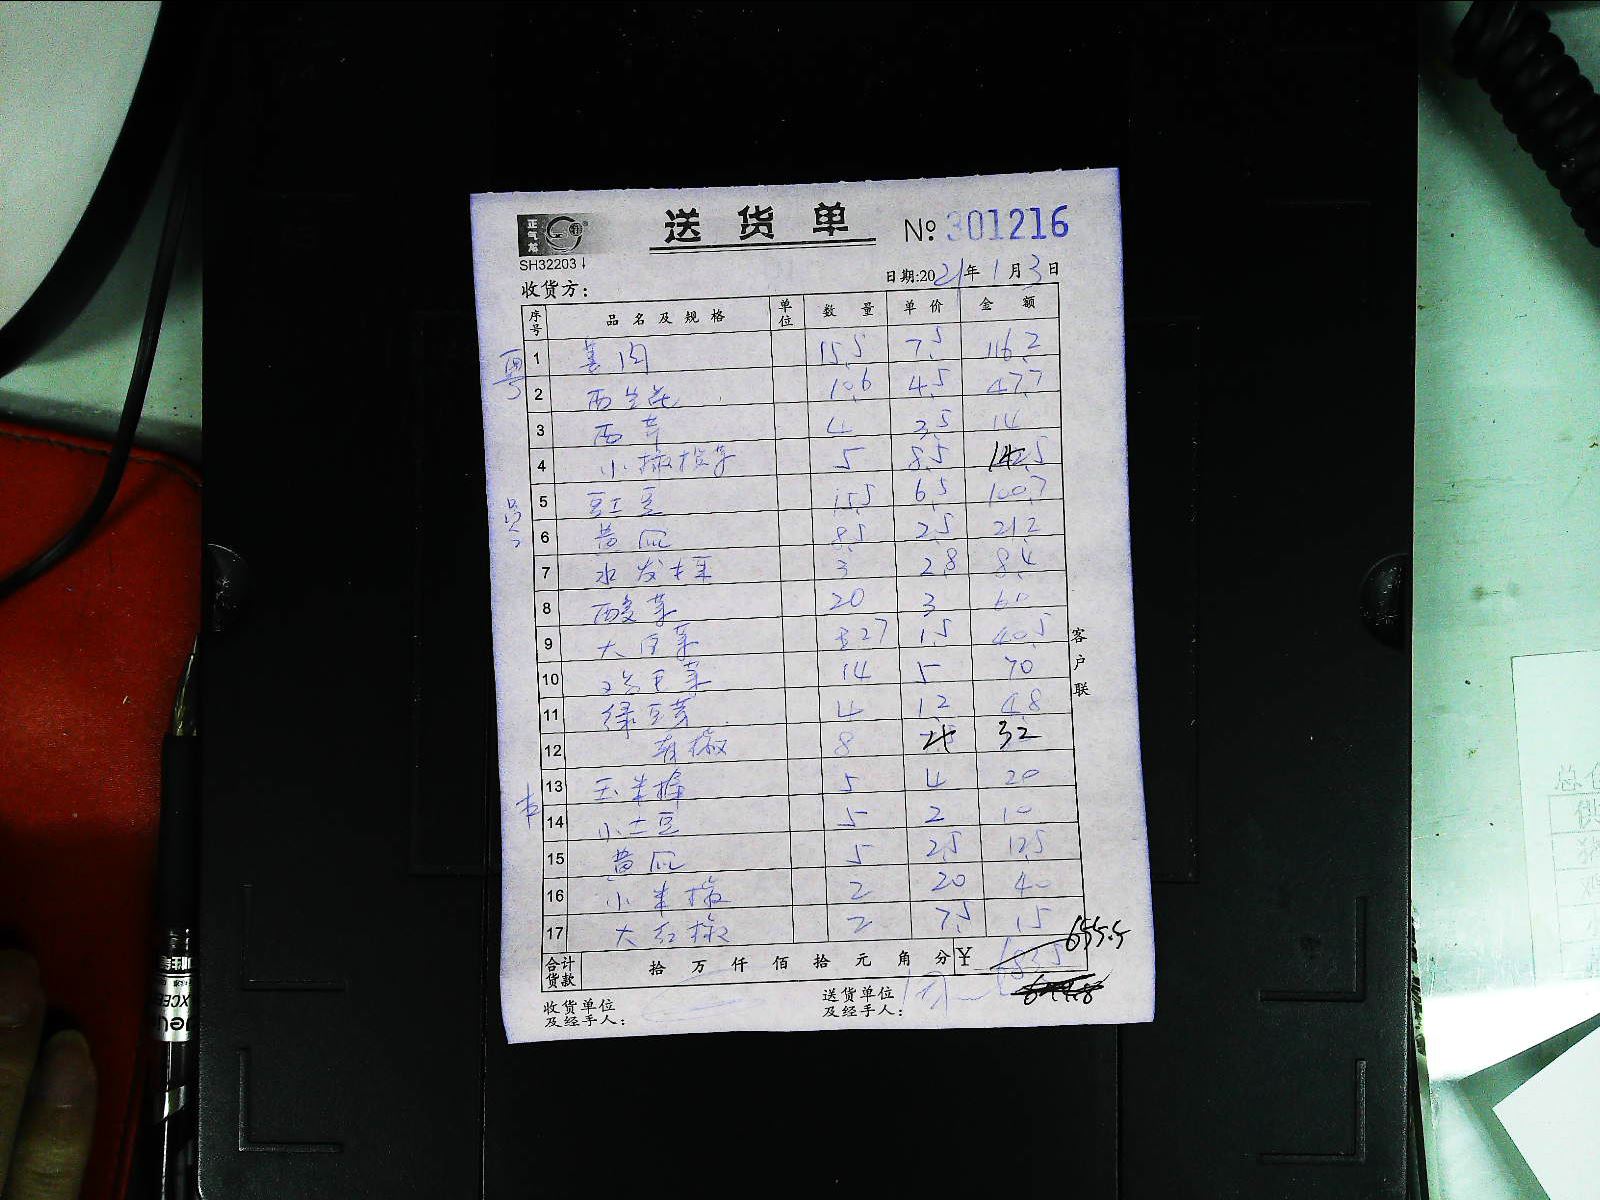 正气龙
送货单 № 301216
SH32203
日期:2021年1月3日
收货方:
序号 品名及规格 单位 数量 单价 金额
粤
1 姜肉 15.5 7.5 116.2
2 西兰花 10.6 4.5 47.7
3 西芹 4 3.5 14
4 5 8.5
5 豇豆 15.5 6.5 100.7
员
6 黄瓜 8.5 2.5 21.2
7 水发 3 2.8 8.4
8 酸菜 20 3 60
9 大白菜 27 1.5 40.5
10 菜 14 5 70
11 绿豆芽 4 1.2 4.8
12 椒 8 32
13 玉米棒 5 4 20
14 小土豆 5 2 10
15 黄瓜 5 2.5 12.5
16 小米椒 2 20 40
17 大红椒 2 7.5 15
655.5
合计货款 拾万仟佰拾元角分 ¥
收货单位及经手人:
送货单位及经手人:
客户联
总
供